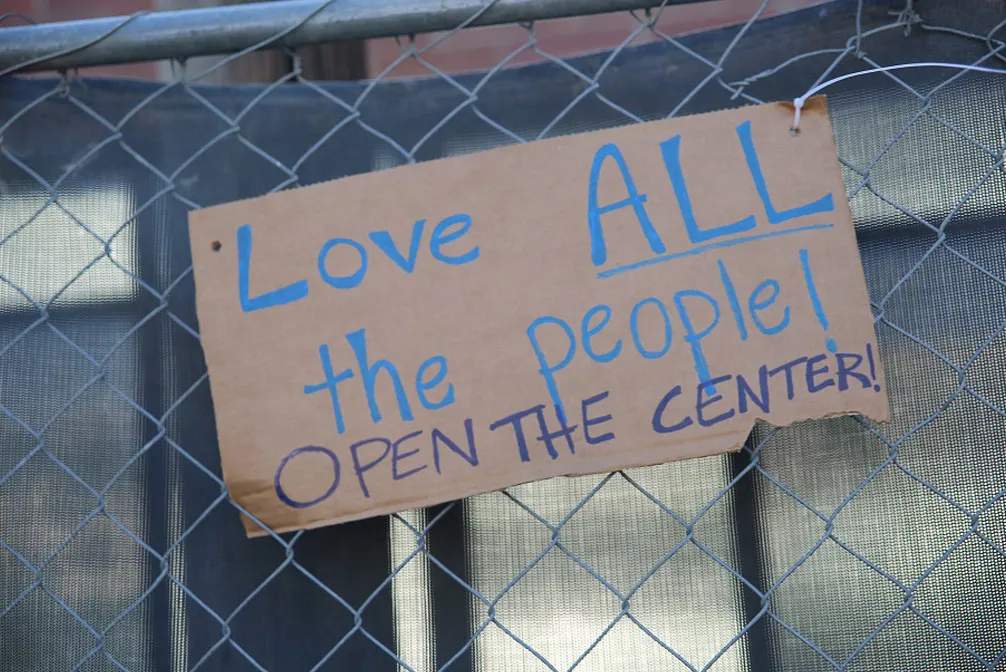 Love ALL
the people!
OPEN THE CENTER!